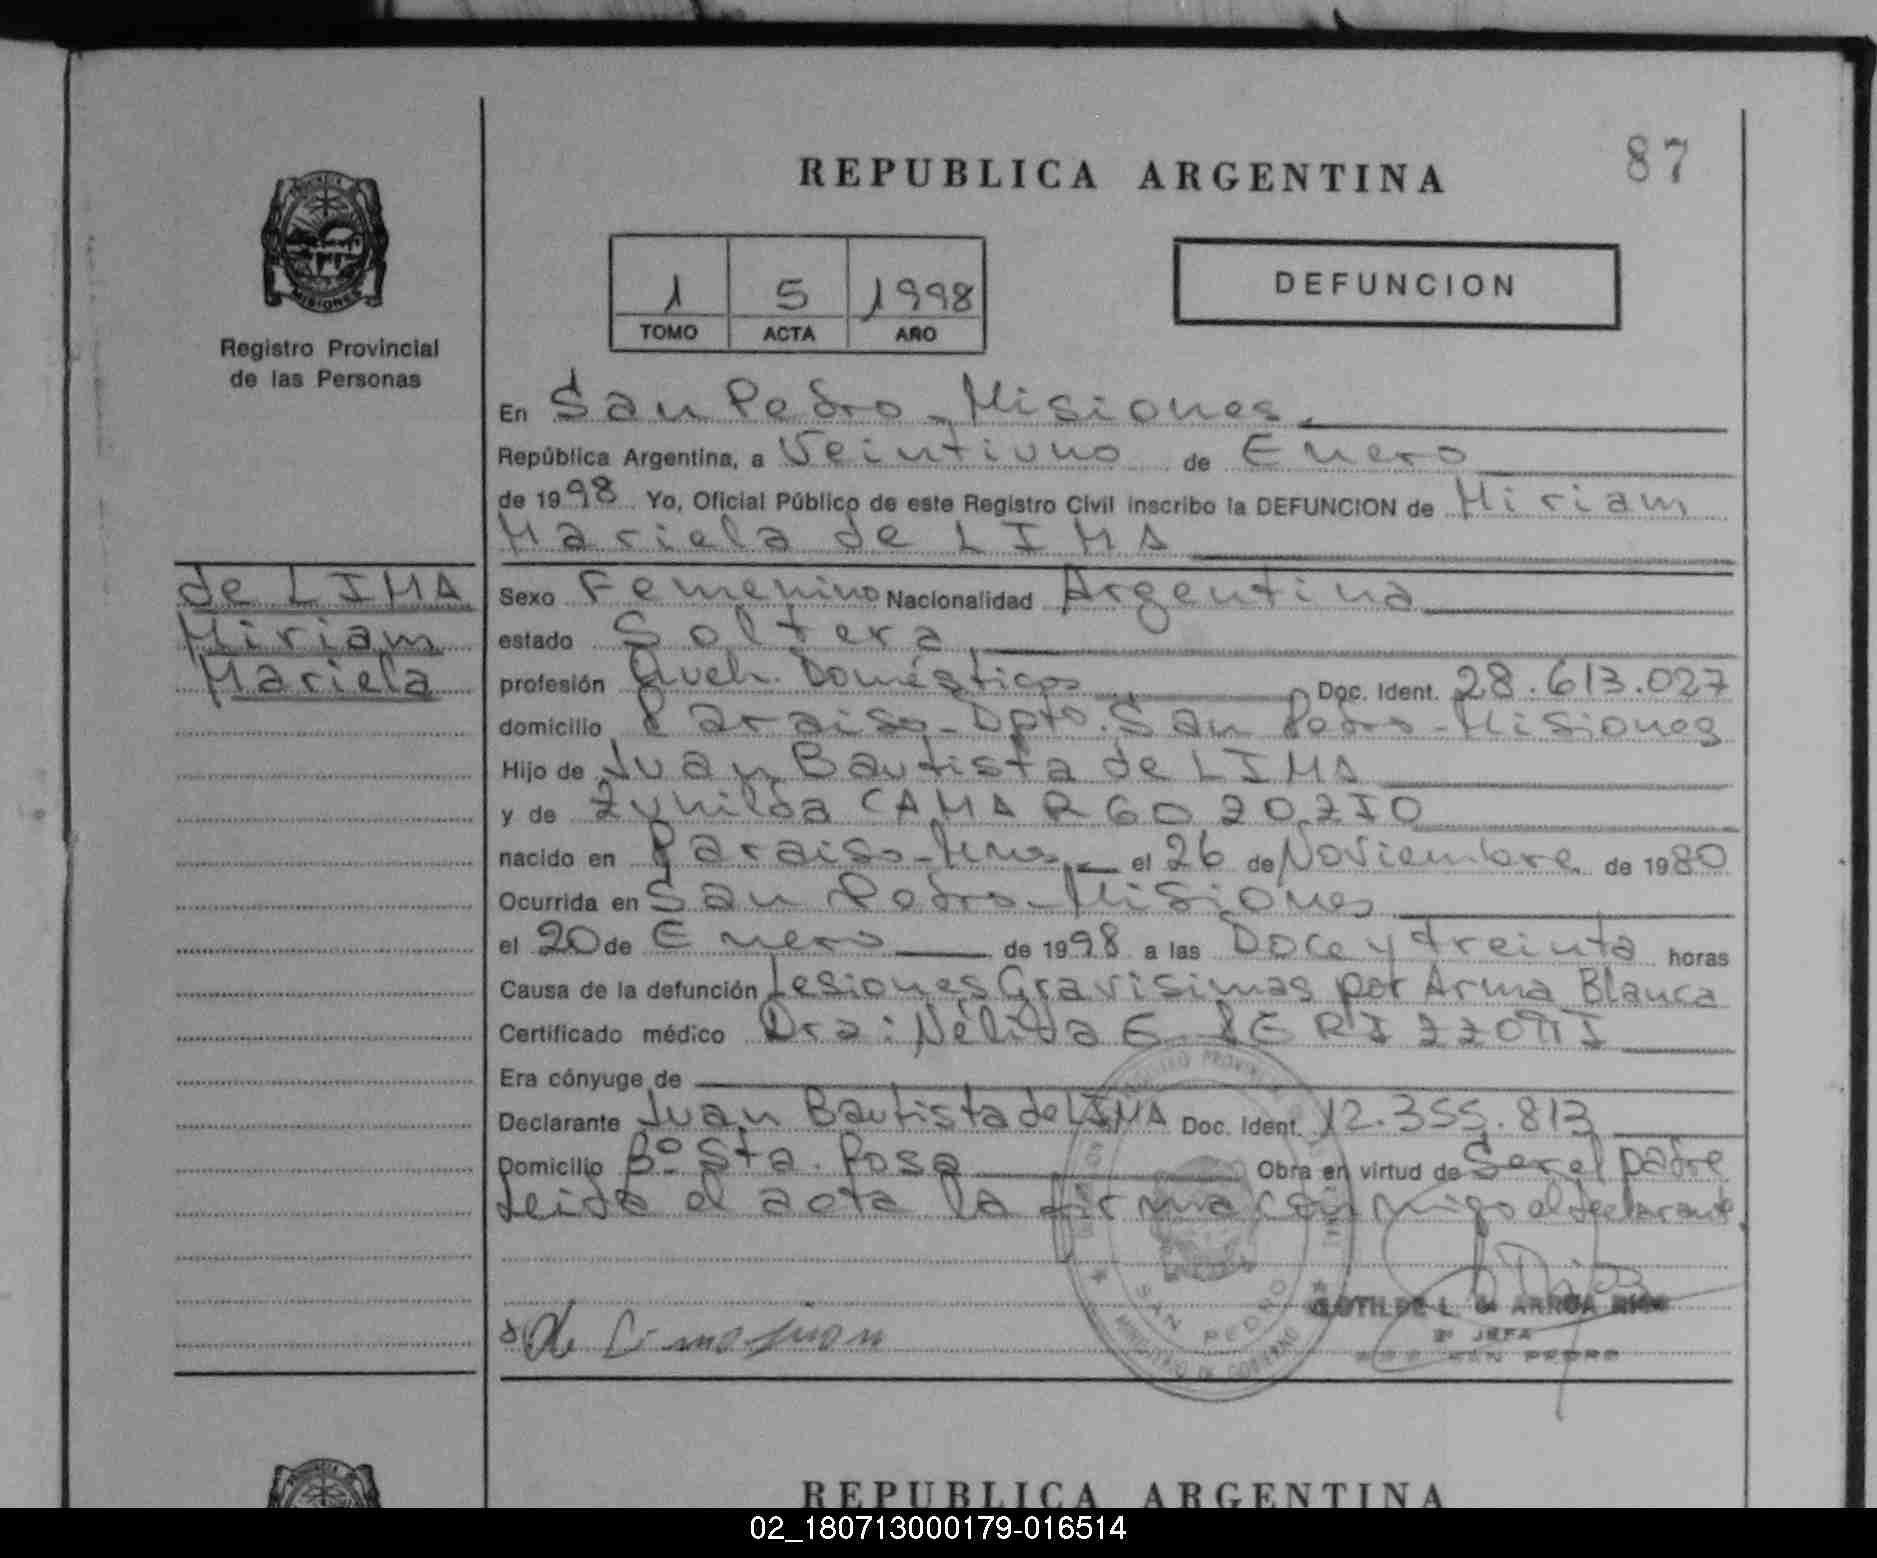 REPUBLICA ARGENTINA
87
PROVINCIA
MISIONES
Registro Provincial
de las Personas
1 5 1998
TOMO ACTA AÑO
DEFUNCION
En San Pedro - Misiones
República Argentina, a Veintiuno de Enero
de 1998 Yo, Oficial Público de este Registro Civil inscribo la DEFUNCION de Miriam
Mariela de LIMA
de LIMA
Miriam
Mariela
Sexo Femenino Nacionalidad Argentina
estado Soltera
profesión Queh. Domésticos Doc. Ident. 28.613.027
domicilio Paraiso - Dpto. San Pedro - Misiones
Hijo de Juan Bautista de LIMA
y de Zunilda CAMARGO
nacido en Paraiso - el 26 de Noviembre de 1980
Ocurrida en San Pedro - Misiones
el 20 de Enero de 1998 a las Doce y treinta horas
Causa de la defunción Lesiones Gravisimas por Arma Blanca
Certificado médico Dra: Nélida E.
Era cónyuge de
Declarante Juan Bautista de LIMA Doc. Ident. 12.355.813
Domicilio Bº Sta. Rosa Obra en virtud de Ser el padre
Leida el acta la firma con migo el declarante.
de Lima juan
SAN PEDRO
MINISTERIO DE GOBIERNO
JEFA
SAN PEDRO
REPUBLICA ARGENTINA
02_180713000179-016514